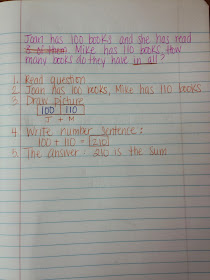 Joan has 100 books and she has read
5 of them. Mike has 110 books. How
many books do they have in all?
1. Read question
2. Joan has 100 books, Mike has 110 books
3. Draw picture
100 110
J + M
4. Write number sentence:
100 + 110 = 210
5. The answer: 210 is the sum